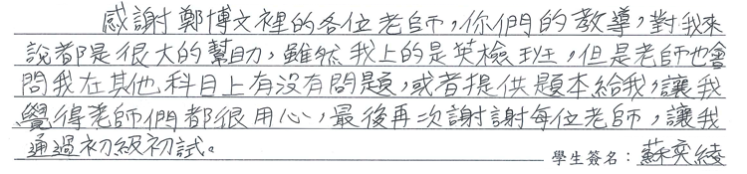 感謝鄭博文裡的各位老師,你們的教導,對我來
說都是很大的幫助,雖然我上的是英檢班,但是老師也會
問我在其他科目上有沒有問題,或者提供題本給我,讓我
覺得老師們都很用心,最後再次謝謝每位老師,讓我
通過初級初試。
學生簽名:蘇奕綾